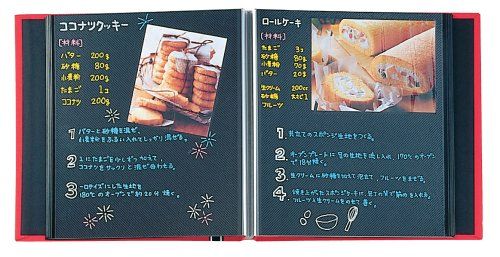 ココナツクッキー
[材料]
バター 200g
砂糖 80g
小麦粉 350g
たまご 1コ
ココナツ 200g
1 バターと砂糖を混ぜ、
小麦粉をふるい入れてしっかり混ぜる。
2 1にたまごを少しずつ加えて、
ココナツをサックリと混ぜ合わせる。
3 一口サイズにした生地を
180℃のオーブンで約20分焼く。
ロールケーキ
[材料]
たまご 3コ
砂糖 80g
小麦粉 70g
バター 20g
生クリーム 200cc
砂糖 大さじ1
フルーツ
1 共立てのスポンジ生地をつくる。
2 オーブンプレートに1の生地を流し入れ、170℃のオーブン
で15分焼く。
3 生クリームに砂糖を加えて泡立て、フルーツをまぜる。
4 焼き上がったスポンジケーキに、包丁の背で筋めを入れ、
フルーツと生クリームをのせて巻く。